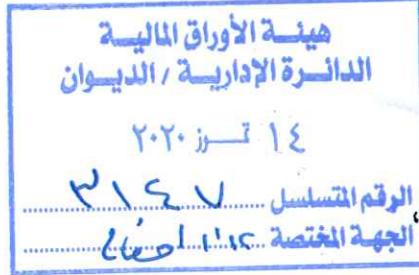 هيئة الأوراق المالية
الدائرة الإدارية / الديوان
١٤ تموز ٢٠٢٠
الرقم المتسلسل ٣١٤٧
الجهة المختصة الإفصاح